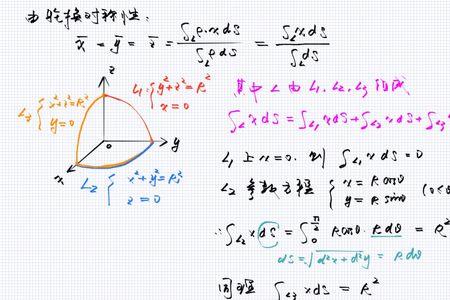 由轮换对称性:
x̄ = ȳ = z̄ = ∫_L ρ·x ds / ∫_L ρ ds = ∫_L x ds / ∫_L ds
z
L₁: { y²+z²=R²
x=0
L₃ { x²+z²=R²
y=0
o
y
x
L₂ { x²+y²=R²
z=0
其中 L 由 L₁, L₂, L₃ 构成
∫_L x ds = ∫_L₁ x ds + ∫_L₂ x ds + ∫_L₃
L₁ 上 x=0. 则 ∫_L₁ x ds = 0
L₂ 参数方程 { x = R cosθ
y = R sinθ (0≤θ
∴ ∫_L₂ x ds = ∫_0^{π/2} R cosθ · R dθ = R²
ds = √(d²x + d²y) = R dθ
同理 ∫_L₃ x ds = R²